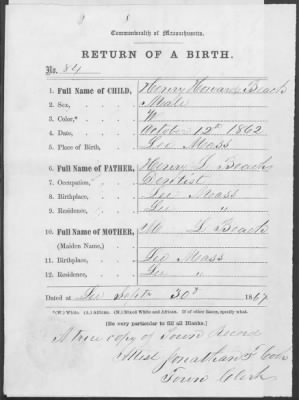 Commonwealth of Massachusetts.
RETURN OF A BIRTH.
No. 84
1. Full Name of CHILD, Henry Howard Beach
2. Sex, Male
3. Color,* W
4. Date, October 12th 1862
5. Place of Birth, Lee Mass
6. Full Name of FATHER, Henry L Beach
7. Occupation, Dentist
8. Birthplace, Lee Mass
9. Residence, Lee "
10. Full Name of MOTHER, L Beach
(Maiden Name,)
11. Birthplace, Mass
12. Residence, Lee "
Dated at Lee Sept 30th 1867
*(W.) White. (A.) African. (M.) Mixed White and African. If of other Races, specify what.
[Be very particular to fill all Blanks.]
A true copy of Town Record
Attest Jonathan F Cook
Town Clerk